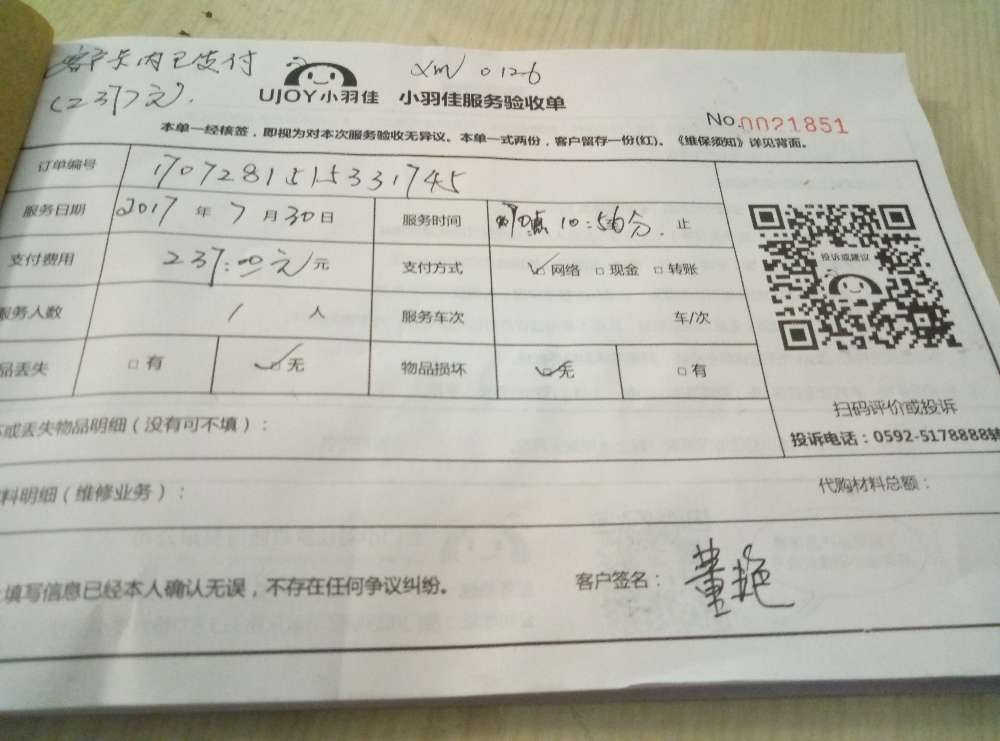 客户卡内已支付
(237元).
XM 0126
UJOY小羽佳 小羽佳服务验收单
No.0021851
本单一经核签，即视为对本次服务验收无异议。本单一式两份，客户留存一份(红)。《维保须知》详见背面。
订单编号 1707281515331745
服务日期 2017 年 7 月 30 日 服务时间 10:50分. 止
支付费用 237.00元 元 支付方式 网络 现金 转账
投诉或建议
服务人数 1 人 服务车次 车/次
品丢失 有 无 物品损坏 无 有
扫码评价或投诉
或丢失物品明细（没有可不填）：
投诉电话：0592-5178888转
料明细（维修业务）： 代购材料总额：
填写信息已经本人确认无误，不存在任何争议纠纷。 客户签名： 董艳